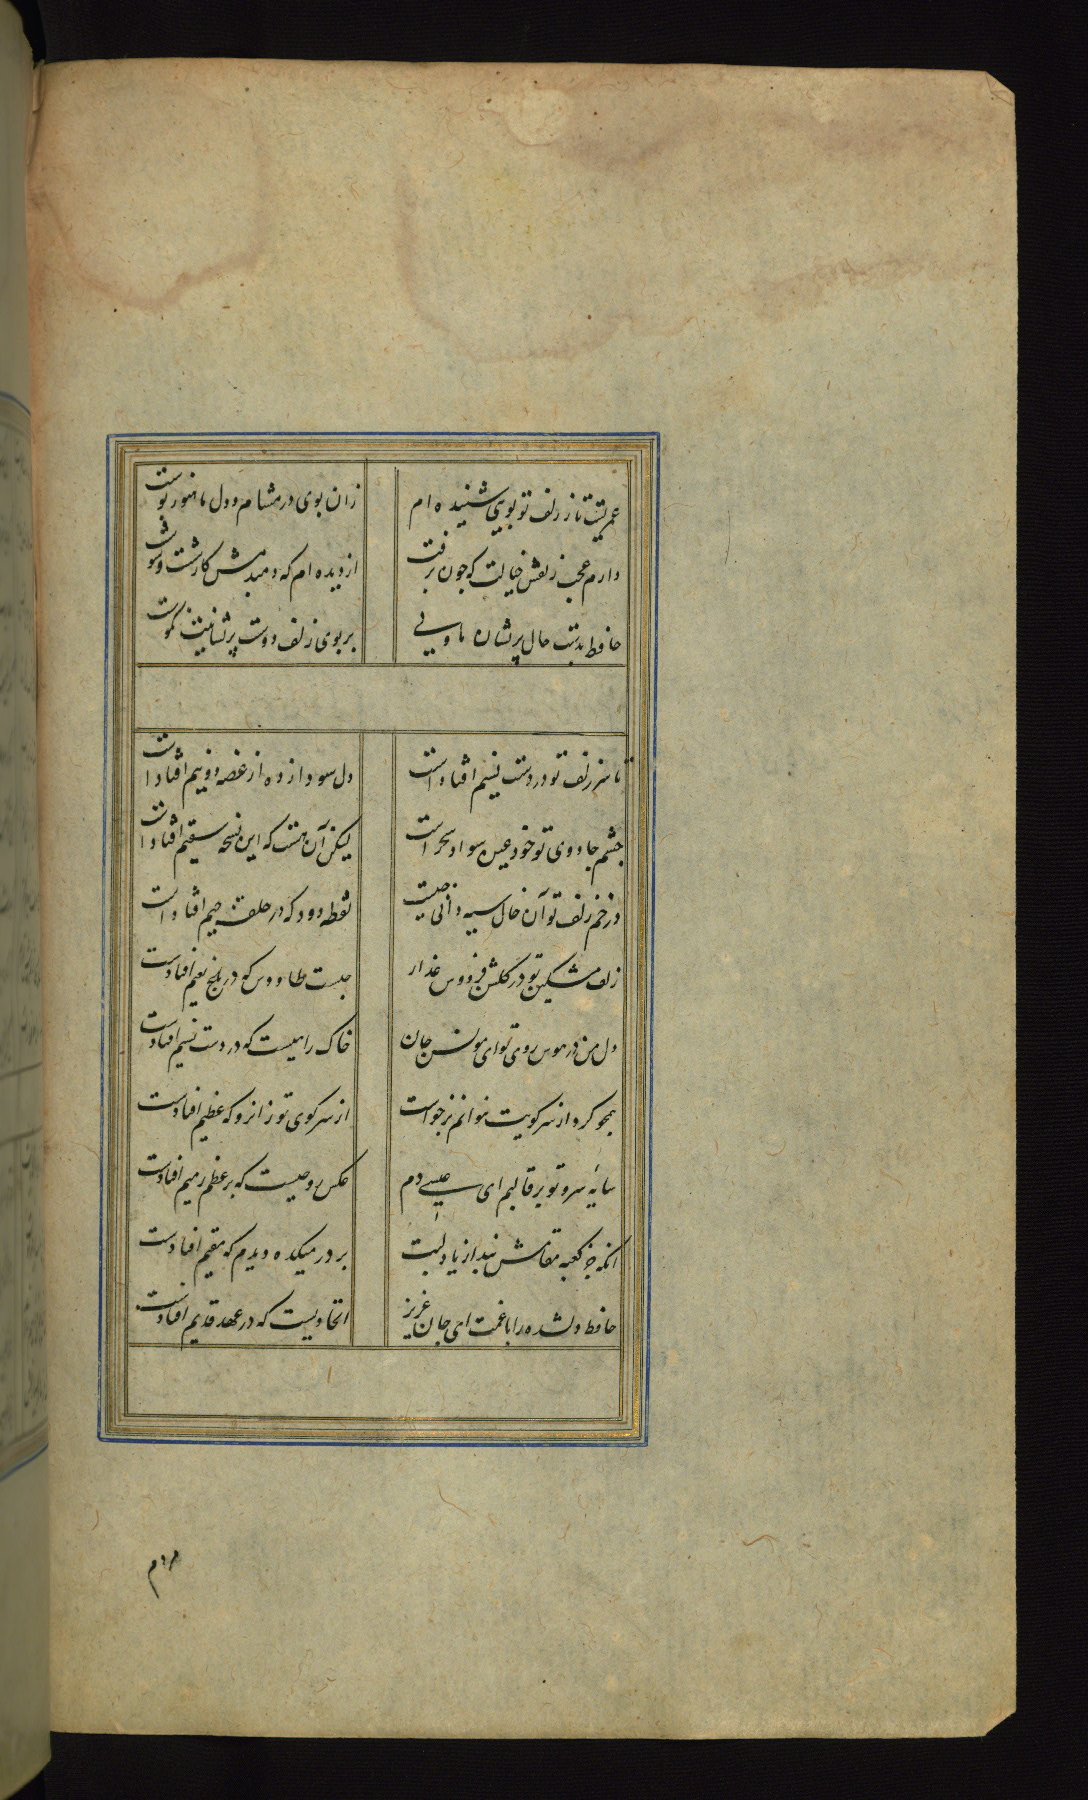 عمریست تا ز زلف تو بویی شنیده ام
زان بوی در مشام دل ما هنوز بوست
دارم عجب ز نقش خیالت که چون برفت
از دیده ام که دمبدمش کار شست و شوست
حافظ بدست حال پریشان تو ولی
بر بوی زلف دوست پریشانیت نکوست
تا سر زلف تو در دست نسیم افتاداست
دل سودا زده از غصه دو نیم افتاداست
چشم جادوی تو خود عین سواد سحر است
لیکن آن هست که این نسخه سقیم افتاداست
در خم زلف تو آن خال سیه دانی چیست
نقطه دود که در حلقه جیم افتاداست
زلف مشکین تو در گلشن فردوس عذار
چیست طاووس که در باغ نعیم افتادست
دل من در هوس روی تو ای مونس جان
خاک راهیست که در دست نسیم افتادست
همچو گرد از سر کویت نتوانم برخواست
از سر کوی تو زانرو که عظیم افتادست
سایه سرو تو بر قالبم ای عیسی دم
عکس روحیست که بر عظم رمیم افتادست
آنکه جز کعبه مقامش نبد از یاد لبت
بر در میکده دیدم که مقیم افتادست
حافظ دلشده را با غمت ای جان عزیز
اتحادیست که در عهد قدیم افتادست
مردم